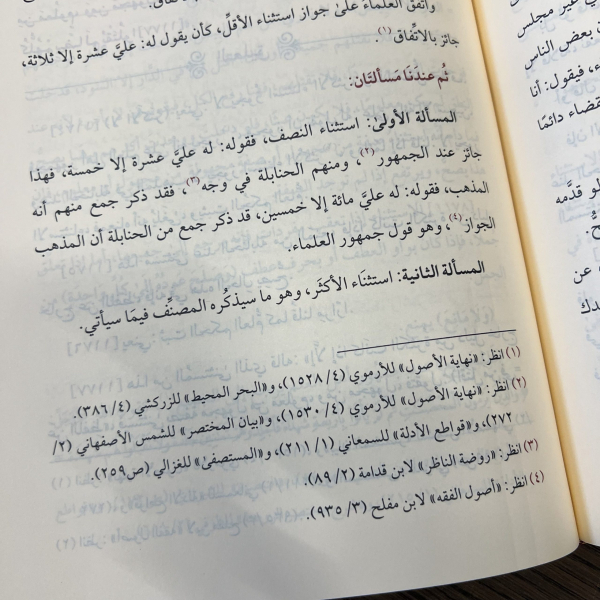 واتفق العلماء على جواز استثناء الأقلِّ، كأن يقول له: عليَّ عشرة إلا ثلاثة،
جائز بالاتِّفاق(١).
ثُم عندَنا مَسألتَان:
المسألة الأولىٰ: استثناء النصف، فقوله: له عليَّ عشرة إلا خمسة، فهذا
جائز عند الجمهور(٢)، ومنهم الحنابلة في وجه(٣)، فقد ذكر جمع منهم أنه
المذهب، فقوله: له عليَّ مائة إلا خمسين، قد ذكر جمع من الحنابلة أن المذهب
الجواز(٤)، وهو قول جمهور العلماء.
المسألة الثانية: استثنَاء الأكثَر، وهو ما سيذكُره المصنِّف فيمَا سيأتي.
(١) انظر: «نهاية الأصول» للأرموي (٤/ ١٥٢٨)، و«البحر المحيط» للزركشي (٤/ ٣٨٦).
(٢) انظر: «نهاية الأصول» للأرموي (٤/ ١٥٣٠)، و«بيان المختصر» للشمس الأصفهاني (٢/
٢٧٢)، و«قواطع الأدلة» للسمعاني (١/ ٢١١)، و«المستصفىٰ» للغزالي (ص٢٥٩).
(٣) انظر: «روضة الناظر» لابن قدامة (٢/ ٨٩).
(٤) انظر: «أصول الفقه» لابن مفلح (٣/ ٩٣٥).
غير مجلس
بعض الناس
فيقول: أنا
قضاء دائمًا
لو قدَّمه
عن